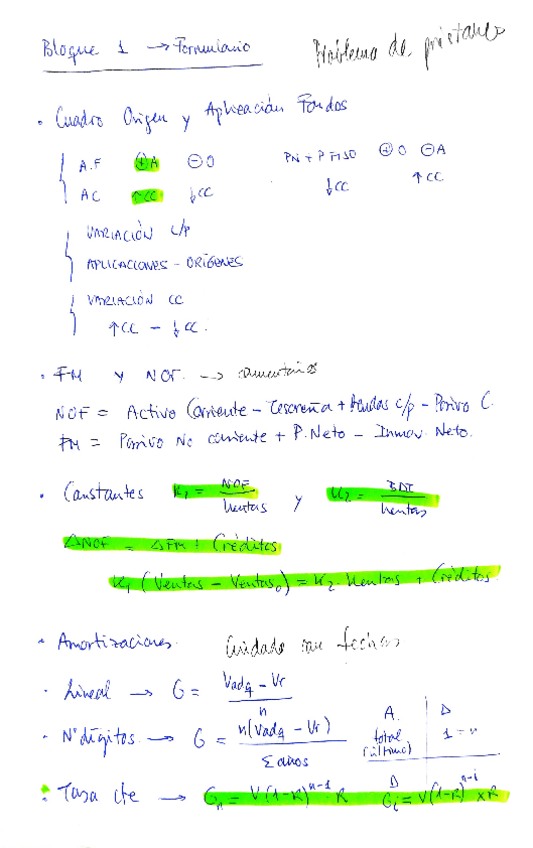 Bloque 1 → Formulario
Problema de préstamo
• Cuadro Origen y Aplicación Fondos
A.F ⊕A ⊖O PN + P FIJO ⊕O ⊖A
AC ↑CC ↓CC ↓CC ↑CC
VARIACIÓN C/P
APLICACIONES - ORÍGENES
VARIACIÓN CC
↑CC - ↓CC.
• FM y NOF. → comentarios
NOF = Activo Corriente - Tesorería + Deudas c/p - Pasivo C.
FM = Pasivo No corriente + P. Neto - Inmov. Neto.
• Constantes K1 = NOF / Ventas y K2 = BDI / Ventas
ΔNOF = ΔFM + Créditos
K1 (Ventas - Ventas0) = K2 · Ventas + Créditos
• Amortizaciones. Cuidado con fechas
• Lineal → G = Vadq - Vr / n
• Nº dígitos → G = n(Vadq - Vr) / Σ años
A. total (último) D 1 = n
• Tasa cte → Gn = V(1-R)^n-1 · R D Gi = V(1-R)^n-i × R